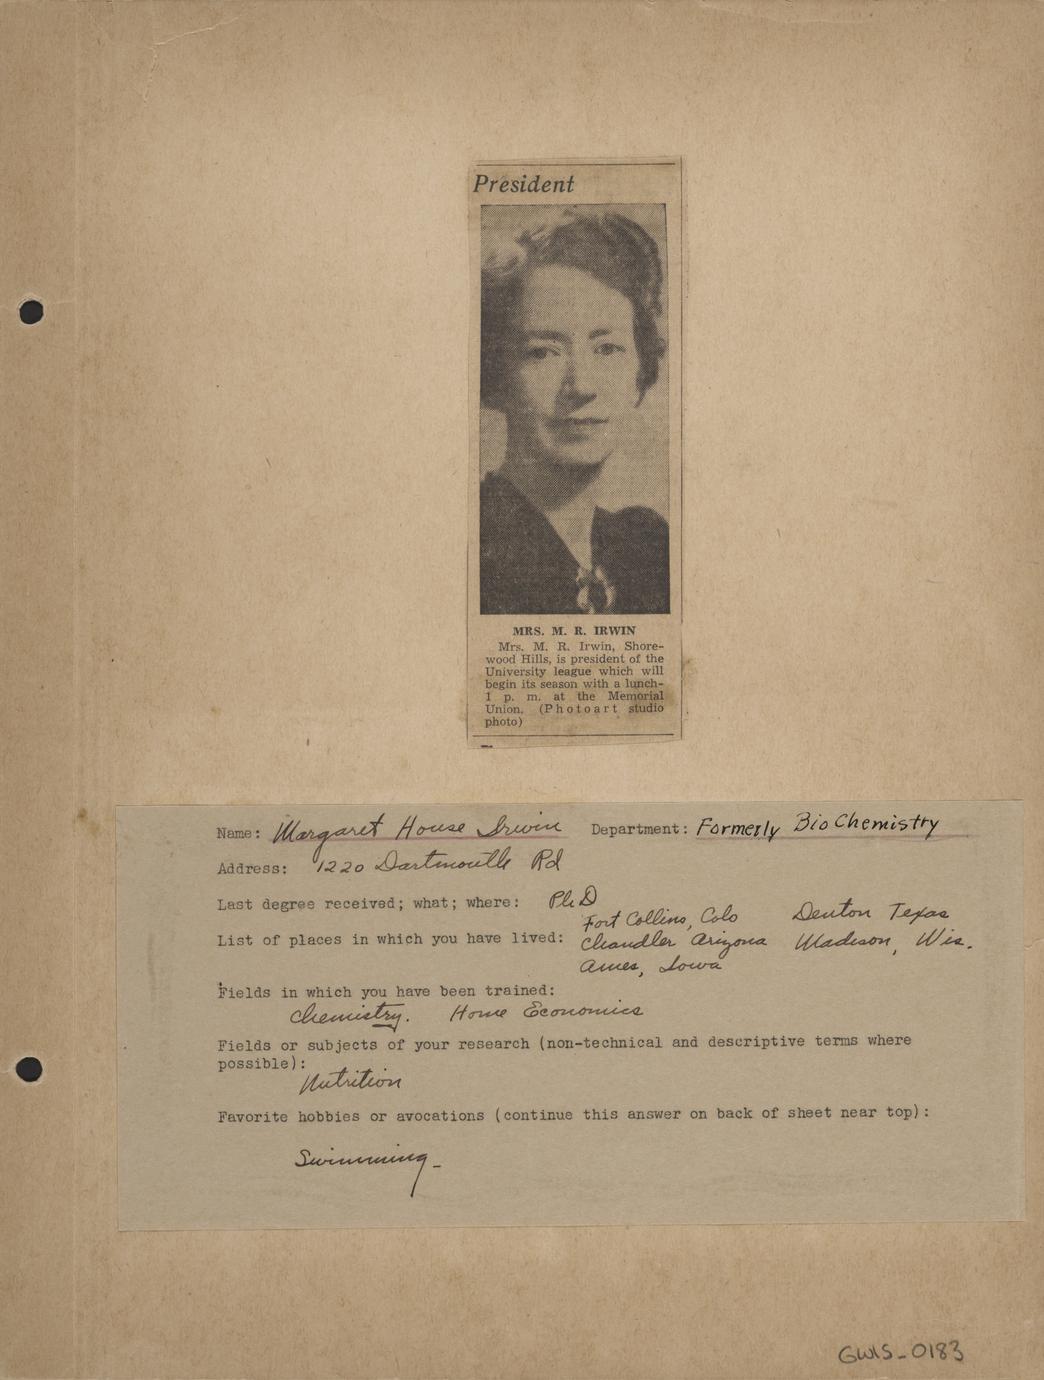 President
MRS. M. R. IRWIN
Mrs. M. R. Irwin, Shore-
wood Hills, is president of the
University league which will
begin its season with a lunch-
1 p. m. at the Memorial
Union. (Photoart studio
photo)
Name: Margaret House Irwin Department: Formerly BioChemistry
Address: 1220 Dartmouth Rd
Last degree received; what; where: Ph D
Fort Collins, Colo Denton Texas
List of places in which you have lived: Chandler Arizona Madison, Wis.
Ames, Iowa
Fields in which you have been trained:
Chemistry. Home Economics
Fields or subjects of your research (non-technical and descriptive terms where
possible):
Nutrition
Favorite hobbies or avocations (continue this answer on back of sheet near top):
Swimming -
GWIS_0183